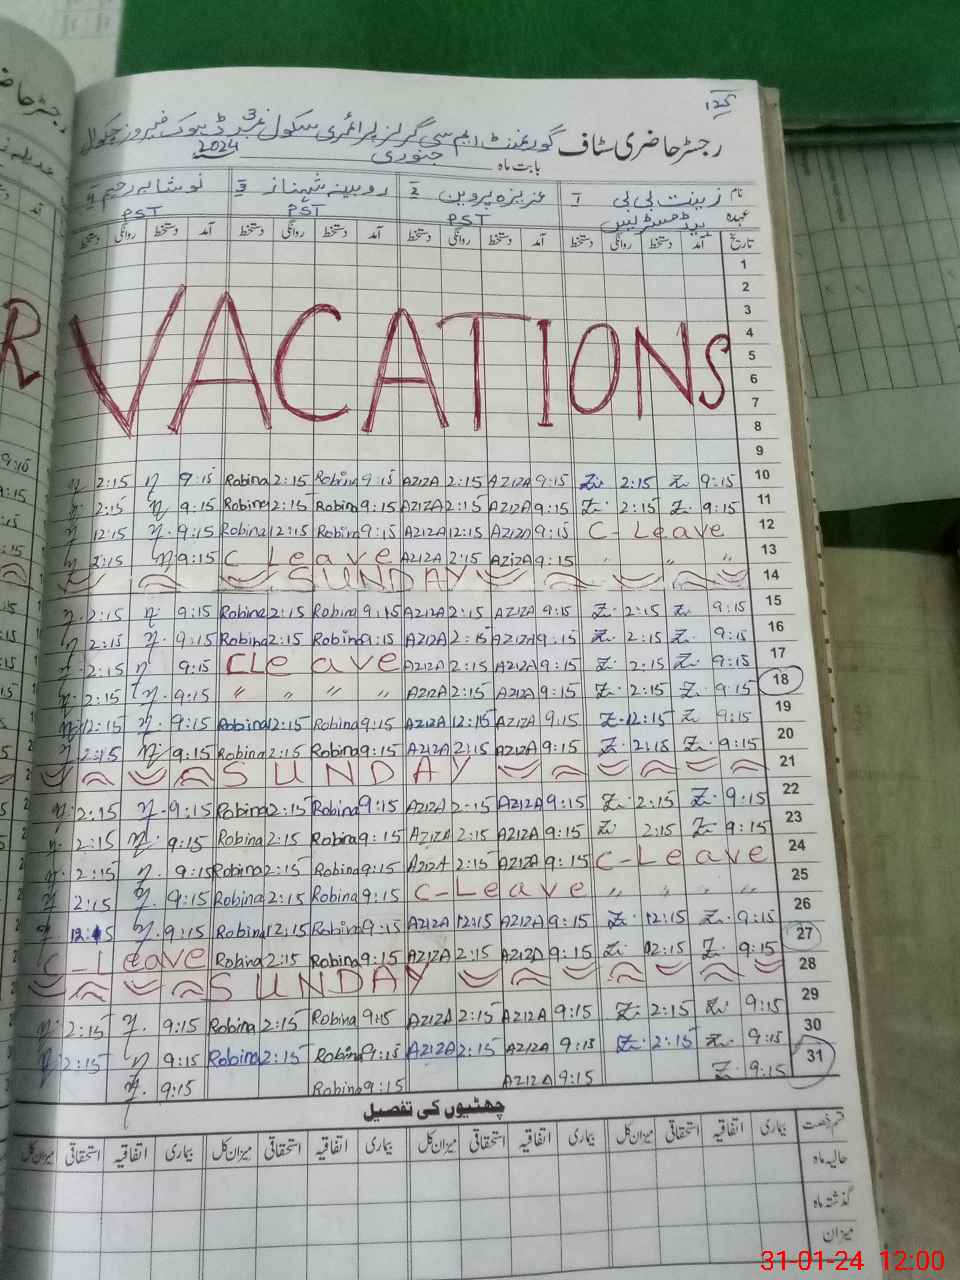 رجسٹر حاضری سٹاف گورنمنٹ ایم سی گرلز پرائمری سکول
بابت ماہ جنوری 2024
نام زینت بی بی 1 عزیزہ پروین 2 روبینہ شہناز 3 نوشابہ رحیم 4
عہدہ ہیڈمسٹریس PST PST PST
تاریخ آمد دستخط روانگی دستخط آمد دستخط روانگی دستخط آمد دستخط روانگی دستخط آمد دستخط روانگی دستخط
1
2
3
VACATIONS
4
5
6
7
8
9
2:15 9:15 Robina 2:15 Robina 9:15 AZIZA 2:15 AZIZA 9:15 Z 2:15 Z 9:15 10
2:15 9:15 Robina 2:15 Robina 9:15 AZIZA 2:15 AZIZA 9:15 Z 2:15 Z 9:15 11
12:15 9:15 Robina 12:15 Robina 9:15 AZIZA 12:15 AZIZA 9:15 C-Leave 12
2:15 9:15 C Leave AZIZA 2:15 AZIZA 9:15 " " " 13
SUNDAY 14
2:15 9:15 Robina 2:15 Robina 9:15 AZIZA 2:15 AZIZA 9:15 Z 2:15 Z 9:15 15
2:15 9:15 Robina 2:15 Robina 9:15 AZIZA 2:15 AZIZA 9:15 Z 2:15 Z 9:15 16
2:15 9:15 CLeave AZIZA 2:15 AZIZA 9:15 Z 2:15 Z 9:15 17
2:15 9:15 " " " " AZIZA 2:15 AZIZA 9:15 Z 2:15 Z 9:15 18
12:15 9:15 Robina 12:15 Robina 9:15 AZIZA 12:15 AZIZA 9:15 Z 12:15 Z 9:15 19
2:15 9:15 Robina 2:15 Robina 9:15 AZIZA 2:15 AZIZA 9:15 Z 2:15 Z 9:15 20
SUNDAY 21
2:15 9:15 Robina 2:15 Robina 9:15 AZIZA 2:15 AZIZA 9:15 Z 2:15 Z 9:15 22
2:15 9:15 Robina 2:15 Robina 9:15 AZIZA 2:15 AZIZA 9:15 Z 2:15 Z 9:15 23
2:15 9:15 Robina 2:15 Robina 9:15 AZIZA 2:15 AZIZA 9:15 C-Leave 24
2:15 9:15 Robina 2:15 Robina 9:15 C-Leave " " " " 25
12:15 9:15 Robina 12:15 Robina 9:15 AZIZA 12:15 AZIZA 9:15 Z 12:15 Z 9:15 26
C-Leave Robina 2:15 Robina 9:15 AZIZA 2:15 AZIZA 9:15 Z 2:15 Z 9:15 27
SUNDAY 28
2:15 9:15 Robina 2:15 Robina 9:15 AZIZA 2:15 AZIZA 9:15 Z 2:15 Z 9:15 29
2:15 9:15 Robina 2:15 Robina 9:15 AZIZA 2:15 AZIZA 9:15 Z 2:15 Z 9:15 30
9:15 Robina 9:15 AZIZA 9:15 Z 9:15 31
چھٹیوں کی تفصیل
قسم رخصت بیماری اتفاقیہ استحقاقی میزان کل بیماری اتفاقیہ استحقاقی میزان کل بیماری اتفاقیہ استحقاقی میزان کل بیماری اتفاقیہ استحقاقی میزان کل
حالیہ ماہ
گذشتہ ماہ
میزان
31-01-24 12:00